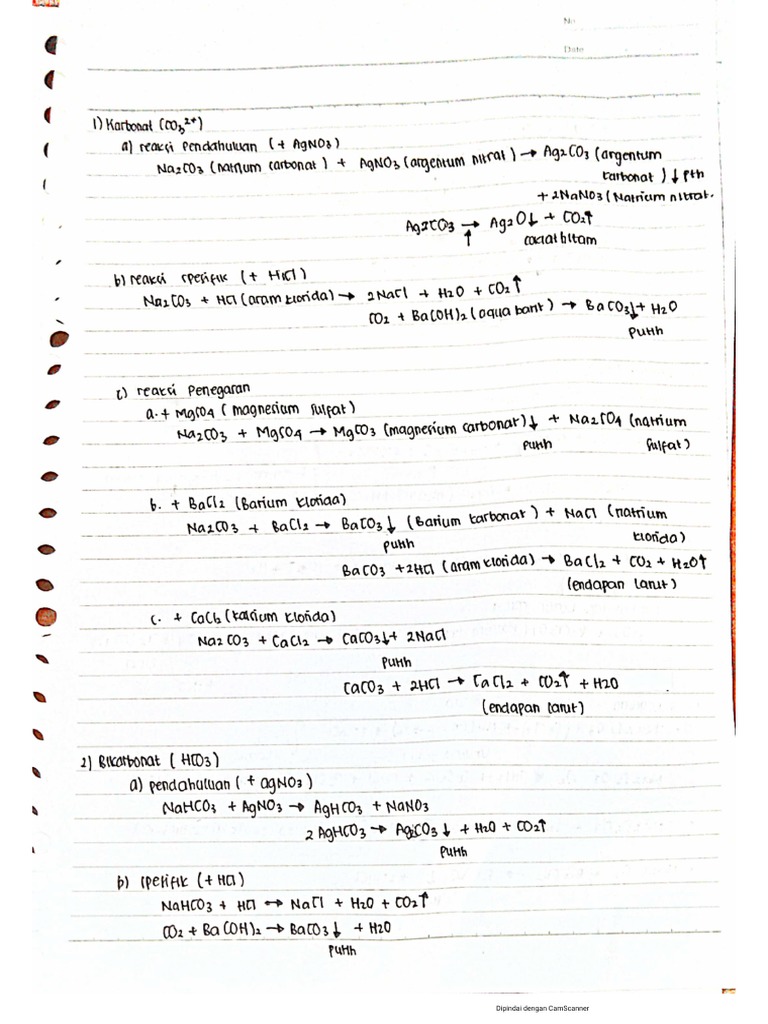 No
Date
1) Karbonat (CO3²⁺)
a) reaksi Pendahuluan (+ AgNO3)
Na2CO3 (natrium carbonat) + AgNO3 (argentum nitrat) → Ag2CO3 (argentum
karbonat) ↓ pth
+ 2NaNO3 (Natrium nitrat.
Ag2CO3 → Ag2O↓ + CO2↑
↑ coklat hitam
b) reaksi spesifik (+ HCl)
Na2CO3 + HCl (asam klorida) → 2NaCl + H2O + CO2↑
CO2 + Ba(OH)2 (aqua barit) → BaCO3↓ + H2O
putih
c) reaksi Penegasan
a. + MgSO4 (magnesium sulfat)
Na2CO3 + MgSO4 → MgCO3 (magnesium carbonat)↓ + Na2SO4 (natrium
putih sulfat)
b. + BaCl2 (Barium klorida)
Na2CO3 + BaCl2 → BaCO3↓ (Barium karbonat) + NaCl (natrium
putih klorida)
BaCO3 + 2HCl (asam klorida) → BaCl2 + CO2 + H2O↑
(endapan larut)
c. + CaCl2 (kalsium klorida)
Na2CO3 + CaCl2 → CaCO3↓ + 2NaCl
putih
CaCO3 + 2HCl → CaCl2 + CO2↑ + H2O
(endapan larut)
2) Bikarbonat (HCO3)
a) pendahuluan (+ agNO3)
NaHCO3 + AgNO3 → AgHCO3 + NaNO3
2 AgHCO3 → Ag2CO3 ↓ + H2O + CO2↑
putih
b) spesifik (+ HCl)
NaHCO3 + HCl ↔ NaCl + H2O + CO2↑
CO2 + Ba(OH)2 → BaCO3↓ + H2O
putih
Dipindai dengan CamScanner